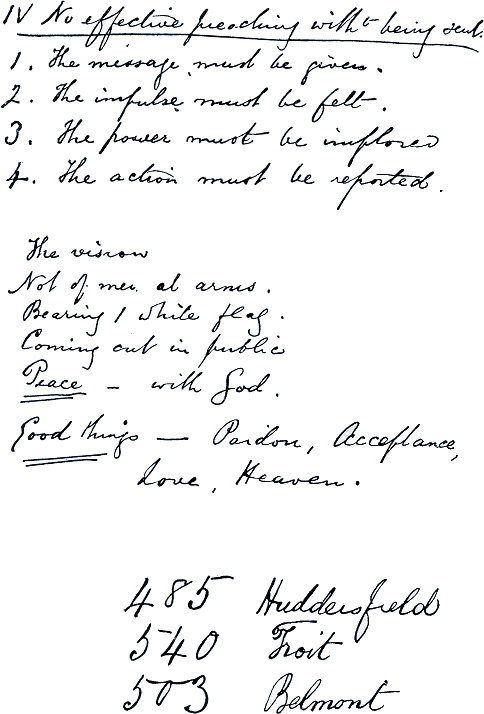 IV No effective preaching witht being sent.
1. The message must be given.
2. The impulse must be felt.
3. The power must be implored
4. The action must be repeated.
The vision
Not of men at arms.
Bearing / white flag.
Coming out in public
Peace – with God.
Good things — Pardon, Acceptance,
Love, Heaven.
485 Huddersfield
540 Troit
503 Belmont